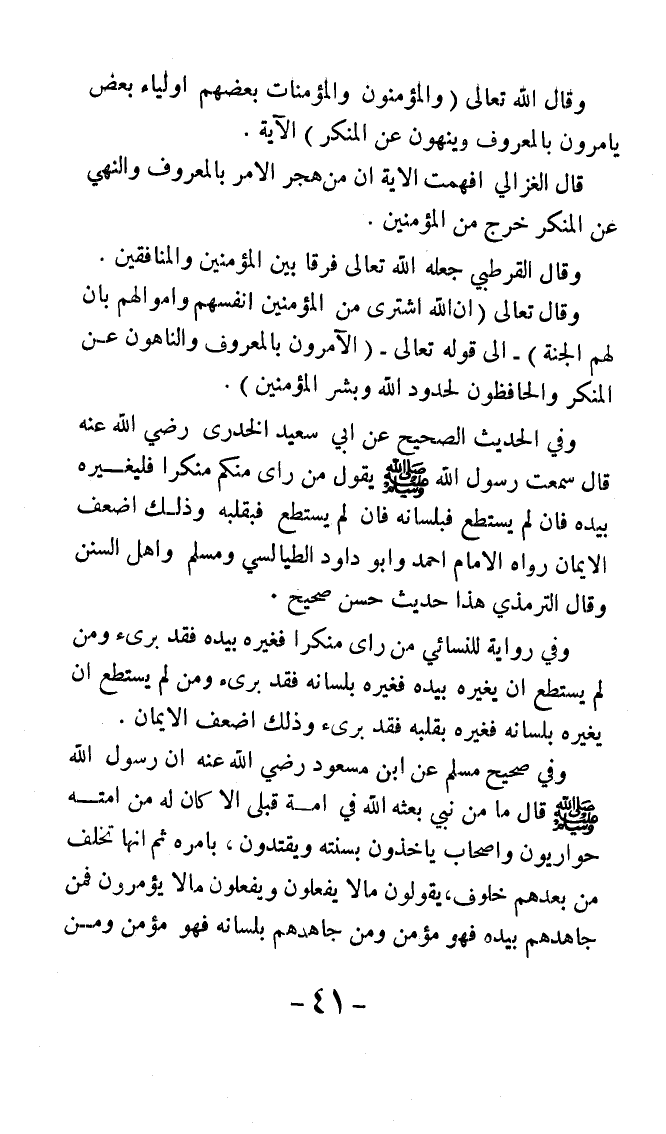 وقال الله تعالى ( والمؤمنون والمؤمنات بعضهم اولياء بعض
يامرون بالمعروف وينهون عن المنكر ) الآية .
قال الغزالي افهمت الاية ان من هجر الامر بالمعروف والنهي
عن المنكر خرج من المؤمنين .
وقال القرطبي جعله الله تعالى فرقا بين المؤمنين والمنافقين .
وقال تعالى ( ان الله اشترى من المؤمنين انفسهم واموالهم بان
لهم الجنة ) ـ الى قوله تعالى ـ ( الآمرون بالمعروف والناهون عـن
المنكر والحافظون لحدود الله وبشر المؤمنين ) .
وفي الحديث الصحيح عن ابي سعيد الخدرى رضي الله عنه
قال سمعت رسول الله ﷺ يقول من راى منكم منكرا فليغـــيره
بيده فان لم يستطع فبلسانه فان لم يستطع فبقلبه وذلـك اضعف
الايمان رواه الامام احمد وابو داود الطيالسي ومسلم واهل السنن
وقال الترمذي هذا حديث حسن صحيح .
وفي رواية للنسائي من راى منكرا فغيره بيده فقد برىء ومن
لم يستطع ان يغيره بيده فغيره بلسانه فقد برىء ومن لم يستطع ان
يغيره بلسانه فغيره بقلبه فقد برىء وذلك اضعف الايمان .
وفي صحيح مسلم عن ابن مسعود رضي الله عنه ان رسول الله
ﷺ قال ما من نبي بعثه الله في امـــة قبلى الا كان له من امتـــه
حواريون واصحاب ياخذون بسنته ويقتدون ، بامره ثم انها تخلف
من بعدهم خلوف، يقولون مالا يفعلون ويفعلون مالا يؤمرون فمن
جاهدهم بيده فهو مؤمن ومن جاهدهم بلسانه فهو مؤمن ومــن
- ٤١ -